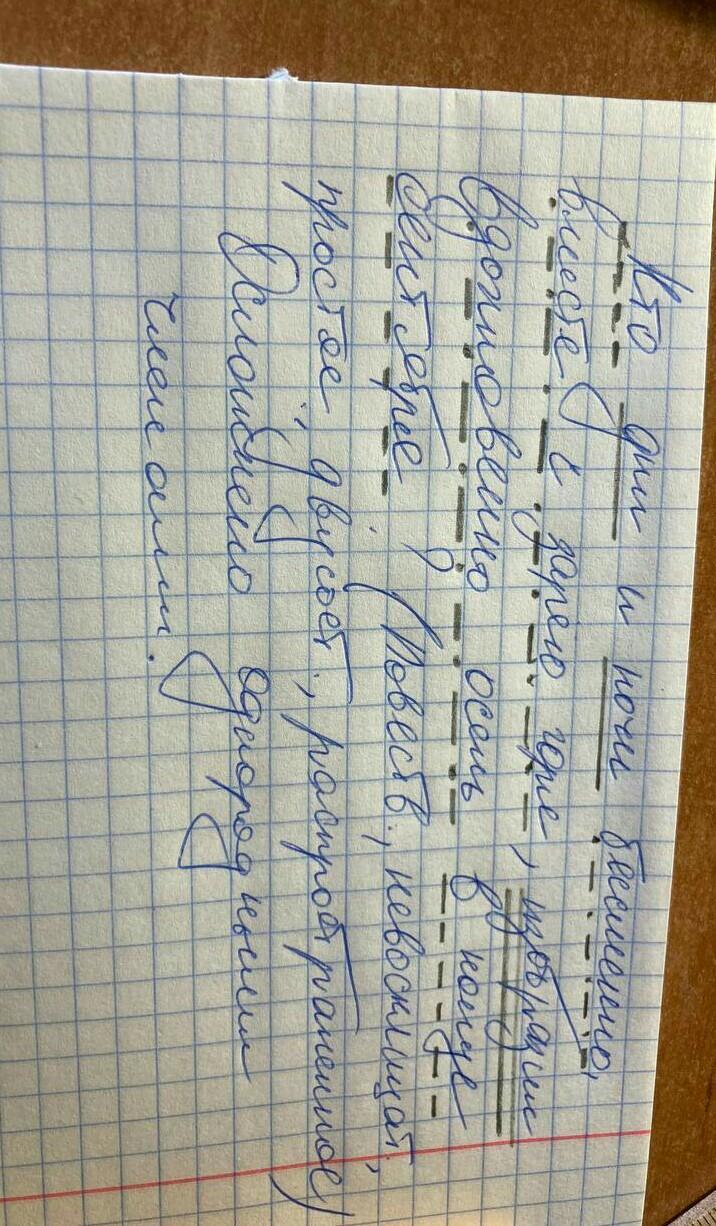 Кто дни и ночи бессменно,
вместе с зарею горе, изобразил
вдохновенно осень в конце
сентября? (Повеств., невосклицат.,
простое, двусост., распространенное)
Осложнено однородными
членами.